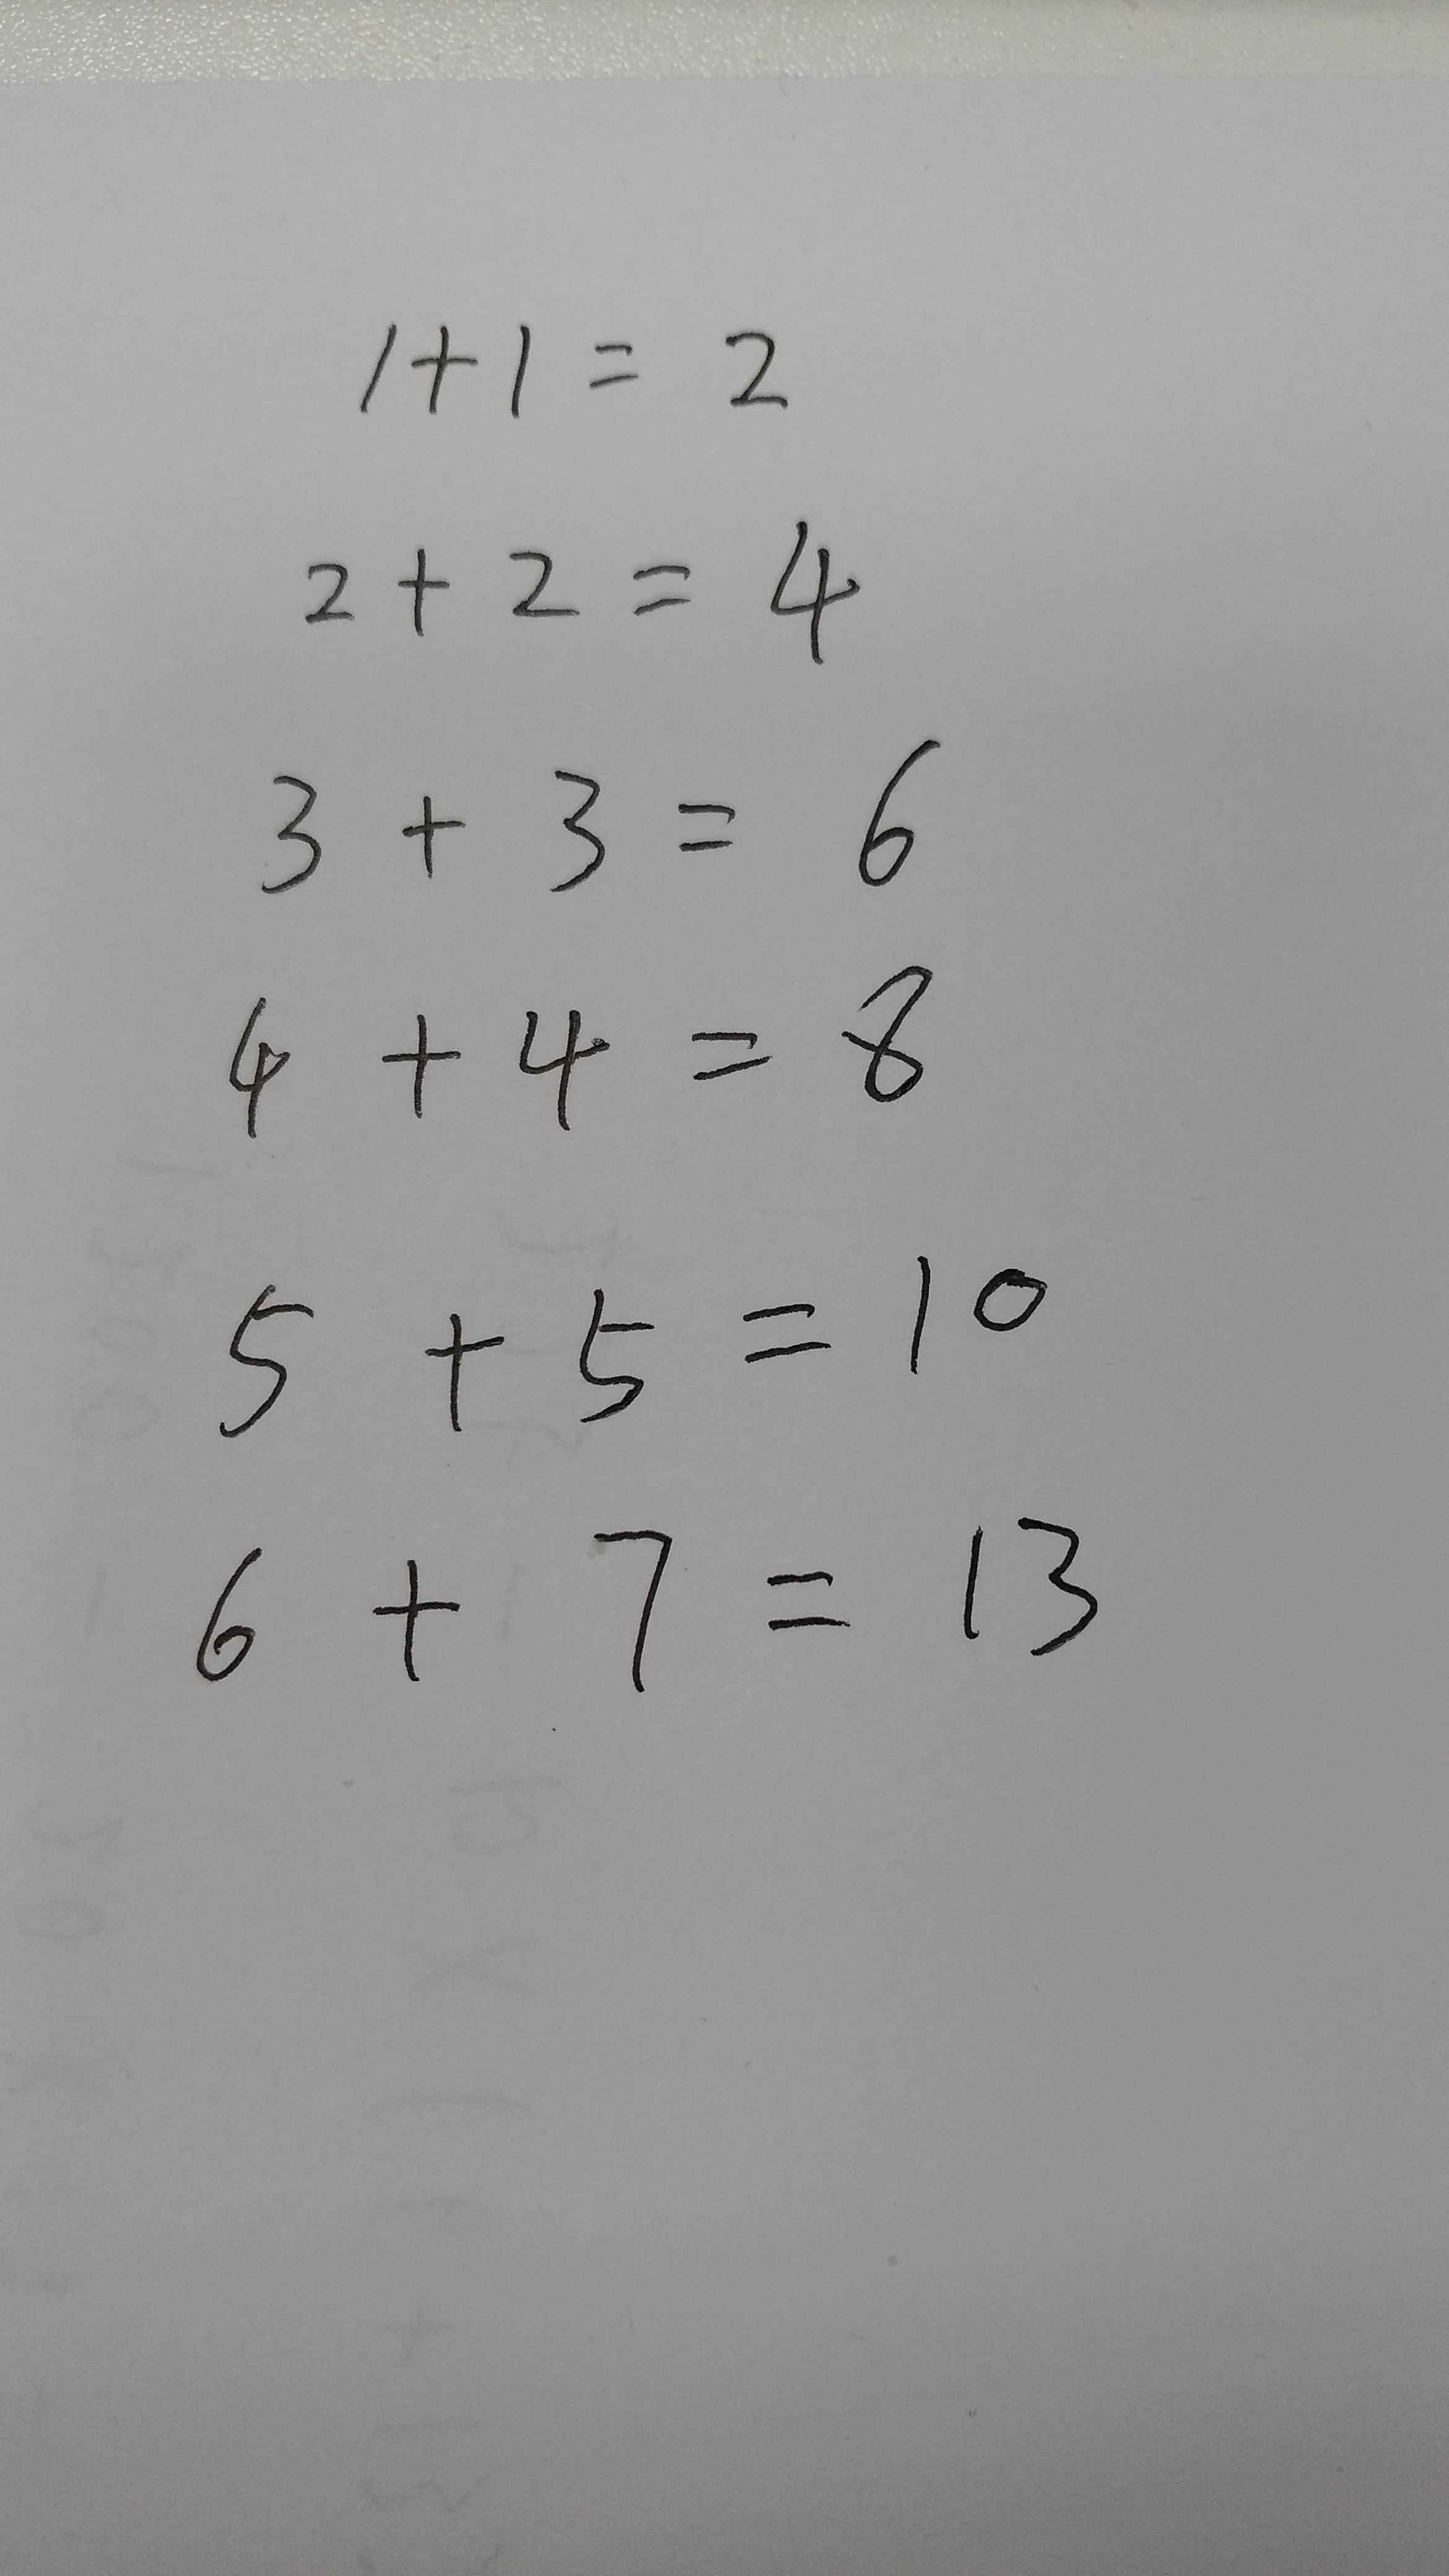 1+1= 2
2 + 2 = 4
3 + 3 = 6
4 + 4 = 8
5 + 5 = 10
6 + 7 = 13